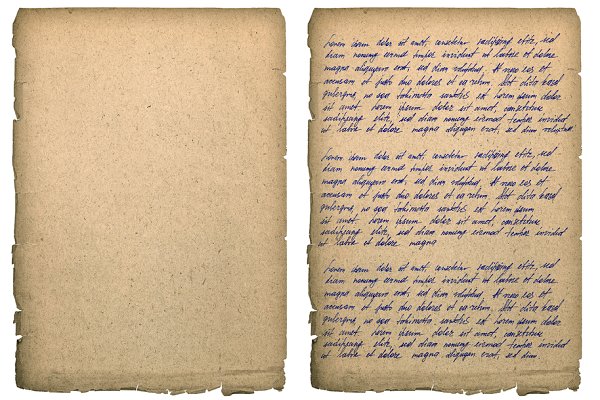 Lorem ipsum dolor sit amet, consetetur sadipscing elitr, sed
diam nonumy eirmod tempor invidunt ut labore et dolore
magna aliquyam erat, sed diam voluptua. At vero eos et
accusam et justo duo dolores et ea rebum. Stet clita kasd
gubergren, no sea takimata sanctus est Lorem ipsum dolor
sit amet. Lorem ipsum dolor sit amet, consetetur
sadipscing elitr, sed diam nonumy eirmod tempor invidut
ut labore et dolore magna aliquyam erat, sed diam voluptua.
Lorem ipsum dolor sit amet, consetetur sadipscing elitr, sed
diam nonumy eirmod tempor invidunt ut labore et dolore
magna aliquyam erat, sed diam voluptua. At vero eos et
accusam et justo duo dolores et ea rebum. Stet clita kasd
gubergren, no sea takimata sanctus est Lorem ipsum
sit amet. Lorem ipsum dolor sit amet, consetetur
sadipscing elitr, sed diam nonumy eirmod tempor invidut
ut labore et dolore magna
Lorem ipsum dolor sit amet, consetetur sadipscing elitr, sed
diam nonumy eirmod tempor invidunt ut labore et dolore
magna aliquyam erat, sed diam voluptua. At vero eos et
accusam et justo duo dolores et ea rebum. Stet clita kasd
gubergren, no sea takimata sanctus est Lorem ipsum dolor
sit amet. Lorem ipsum dolor sit amet, consetetur
sadipscing elitr, sed diam nonumy eirmod tempor invidut
ut labore et dolore magna aliquyam erat, sed diam.